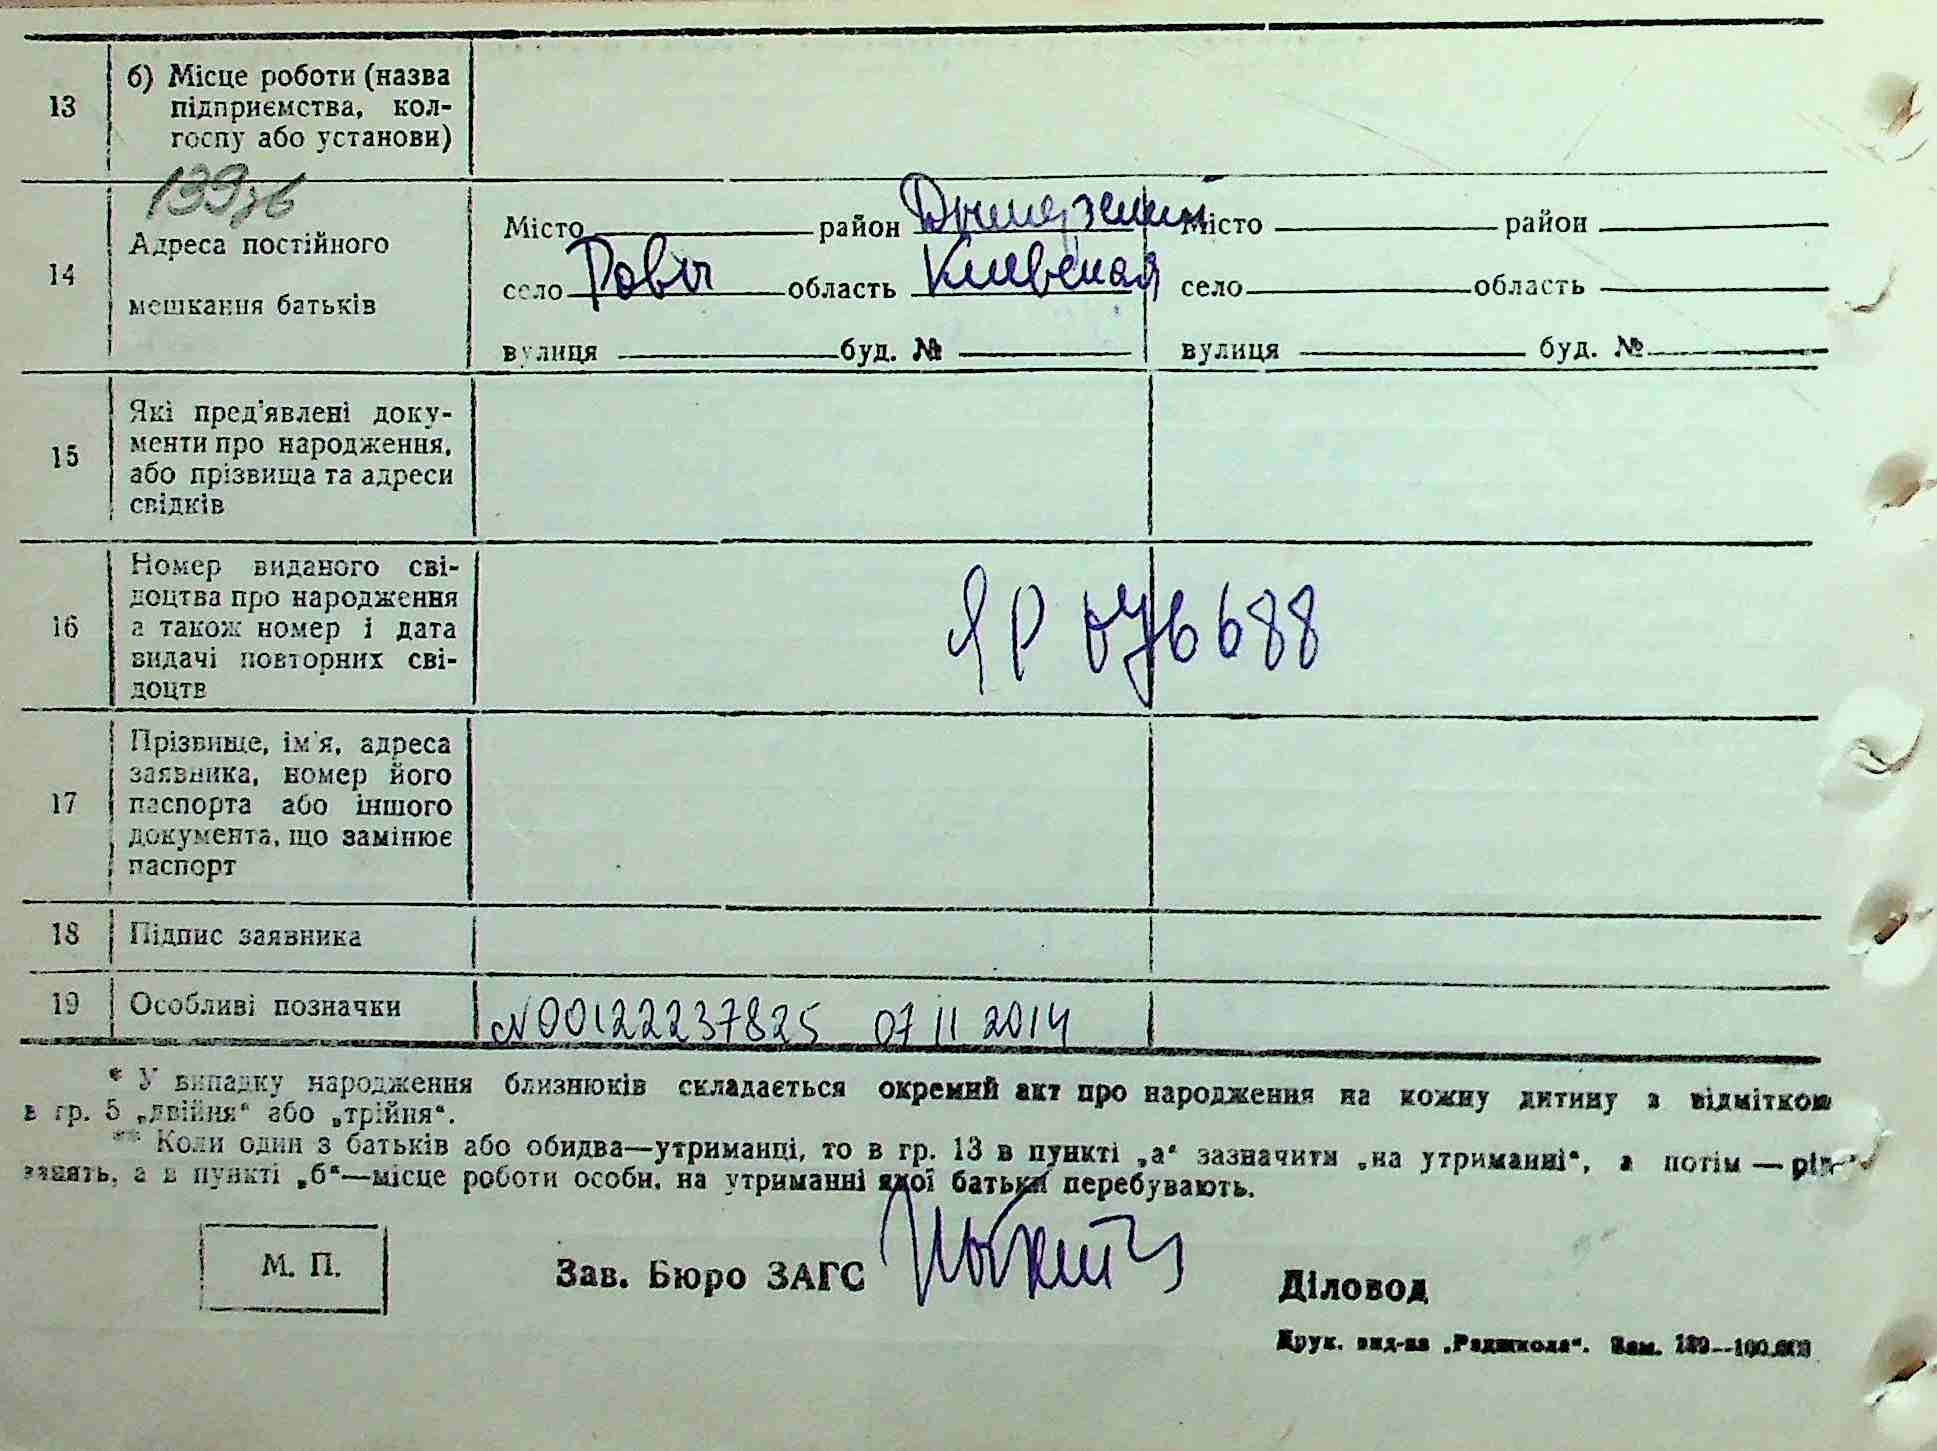 13
б) Місце роботи (назва
підприємства, кол-
госпу або установи)
139зв
14
Адреса постійного
мешкання батьків
Місто район
село Ровы область Киевская
вулиця буд. №
Місто район
село область
вулиця буд. №
15
Які пред'явлені доку-
менти про народження,
або прізвища та адреси
свідків
16
Номер виданого сві-
доцтва про народження
а також номер і дата
видачі повторних сві-
доцтв
ЯР 076688
17
Прізвище, ім'я, адреса
заявника, номер його
паспорта або іншого
документа, що замінює
паспорт
18
Підпис заявника
19
Особливі позначки
N00122237825 07 11 2014
* У випадку народження близнюків складається окремий акт про народження на кожну дитину з відміткою
в гр. 5 „двійня“ або „трійня“.
** Коли один з батьків або обидва—утриманці, то в гр. 13 в пункті „а“ зазначити „на утриманні“, а потім — рід
занять, а в пункті „б“—місце роботи особи, на утриманні якої батьки перебувають.
М. П.
Зав. Бюро ЗАГС
Діловод
Друк. вид-ва „Радшкола“. Зам. 139—100.000